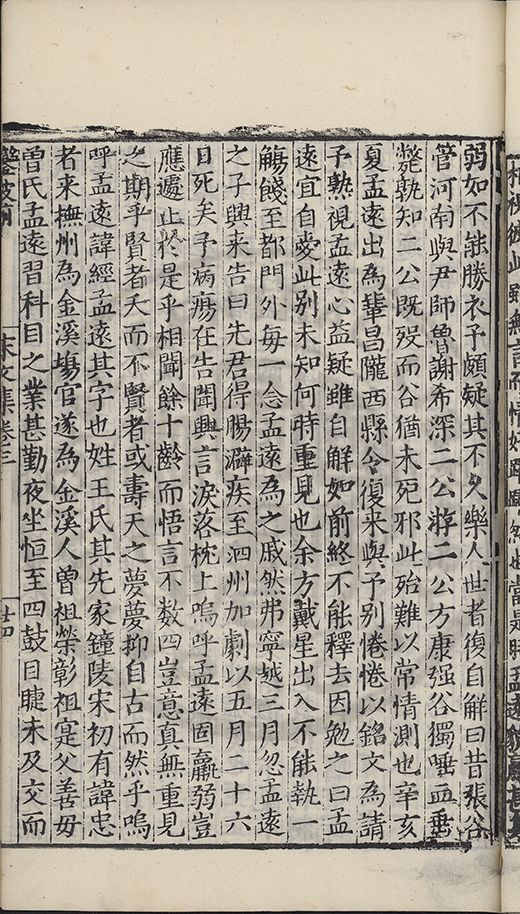 弱如不能勝衣予頗疑其不久樂人世者復自解曰昔張谷
管河南與尹師魯謝希深二公游二公方康强谷獨唾血垂
斃孰知二公既歿而谷猶未死邪此殆難以常情測也辛亥
夏孟遠出為鞏昌隴西縣令復来與予别惓惓以銘文為請
予熟視孟遠心益疑雖自解如前終不能釋去因勉之曰孟
遠宜自愛此别未知何時重見也余方戴星出入不能執一
觴餞至都門外每一念孟遠為之戚然弗寧越三月忽孟遠
之子興来告曰先君得腸澼疾至泗州加劇以五月二十六
日死矣予病瘍在告聞興言淚落枕上嗚呼孟遠固羸弱豈
應遽止於是乎相聞餘十齡而悟言不数四豈意真無重見
之期乎賢者夭而不賢者或壽天之夢夢抑自古而然乎嗚
呼孟遠諱經孟遠其字也姓王氏其先家鐘陵宋初有諱忠
者来撫州為金溪塲官遂為金溪人曾祖榮彰祖寔父善毋
曾氏孟遠習科目之業甚勤夜坐恒至四鼓目睫未及交而
宋文集卷三
廿四